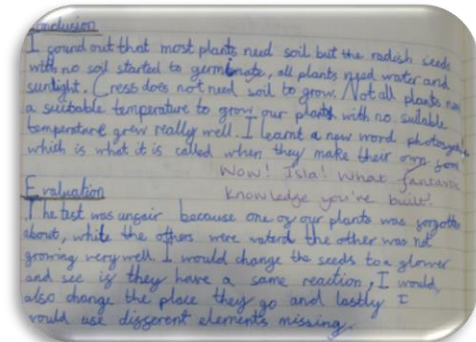 Conclusion
I found out that most plants need soil but the radish seeds
with no soil started to germinate, all plants need water and
sunlight. Cress does not need soil to grow. Not all plants
a suitable temperature to grow our plants with no suitable
temperature grew really well. I learnt a new word
which is what it is called when they make their own
Wow! Isla! What fantastic
knowledge you've built.
Evaluation
The test was unfair because one of our plants was
about, while the others were waterd the other was not
growing very well. I would change the seeds to a flower
and see if they have a same reaction, I would
also change the place they go and lastly I
would use different elements missing.